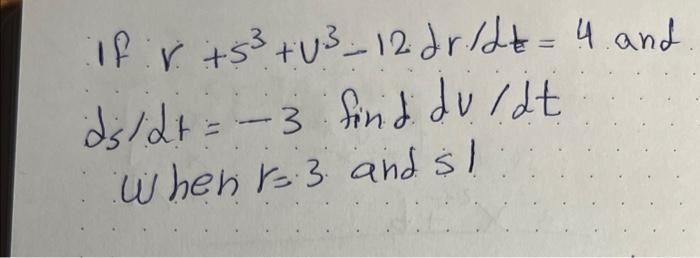 If r + s³ + v³ - 12 dr/dt = 4 and
ds/dt = -3 find dv/dt
when r = 3 and s1